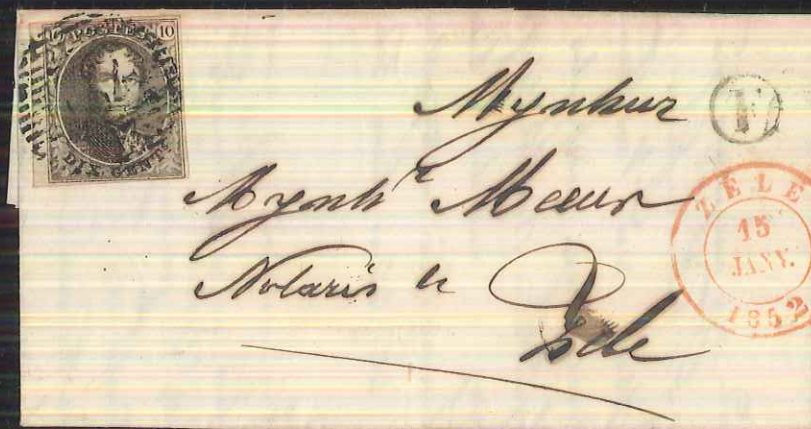 10
POSTES
10
DIX CENTS
Mynheer
Mynhr Meeus
Notaris te
Zele
ZELE
15
JANV.
1852